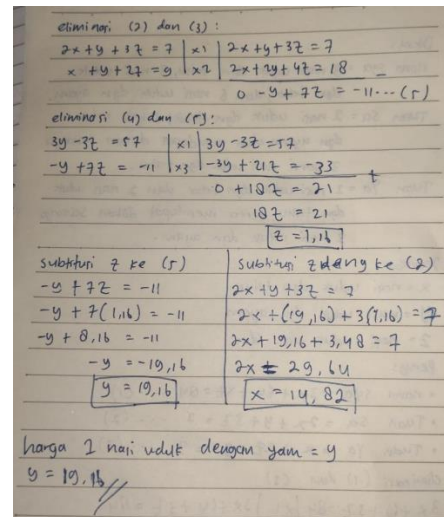 eliminasi (2) dan (3) :
2x + y + 3z = 7 | x1 | 2x + y + 3z = 7
x + y + 2z = 9 | x2 | 2x + 2y + 4z = 18 -
0 - y + 7z = -11 ... (5)
eliminasi (4) dan (5) :
3y - 3z = 57 | x1 | 3y - 3z = 57
-y + 7z = -11 | x3 | -3y + 21z = -33 +
0 + 18z = 21
18z = 21
z = 1,16
substitusi z ke (5)
-y + 7z = -11
-y + 7(1,16) = -11
-y + 8,16 = -11
-y = -19,16
y = 19,16
substitusi z dan y ke (2)
2x + y + 3z = 7
2x + (19,16) + 3(1,16) = 7
2x + 19,16 + 3,48 = 7
2x = 29,64
x = 14,82
harga 1 nasi uduk dengan yam = y
y = 19,16